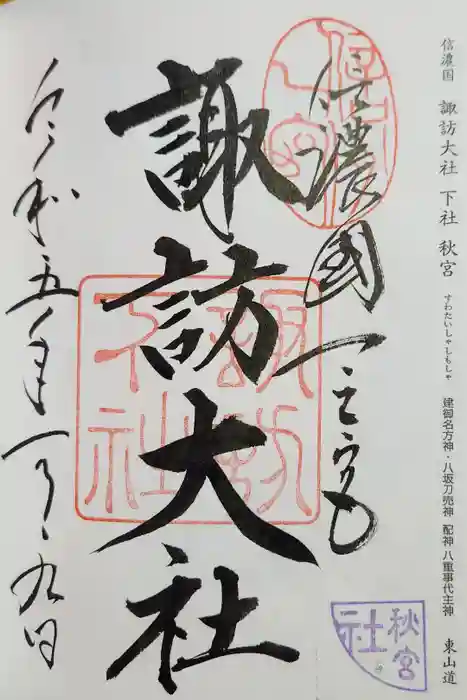 信濃国 諏訪大社 下社 秋宮 すわたいしゃしもしゃ 建御名方神・八坂刀売神 配神 八重事代主神 東山道
信濃國一之宮
諏訪大社
諏訪
下社
秋宮
社